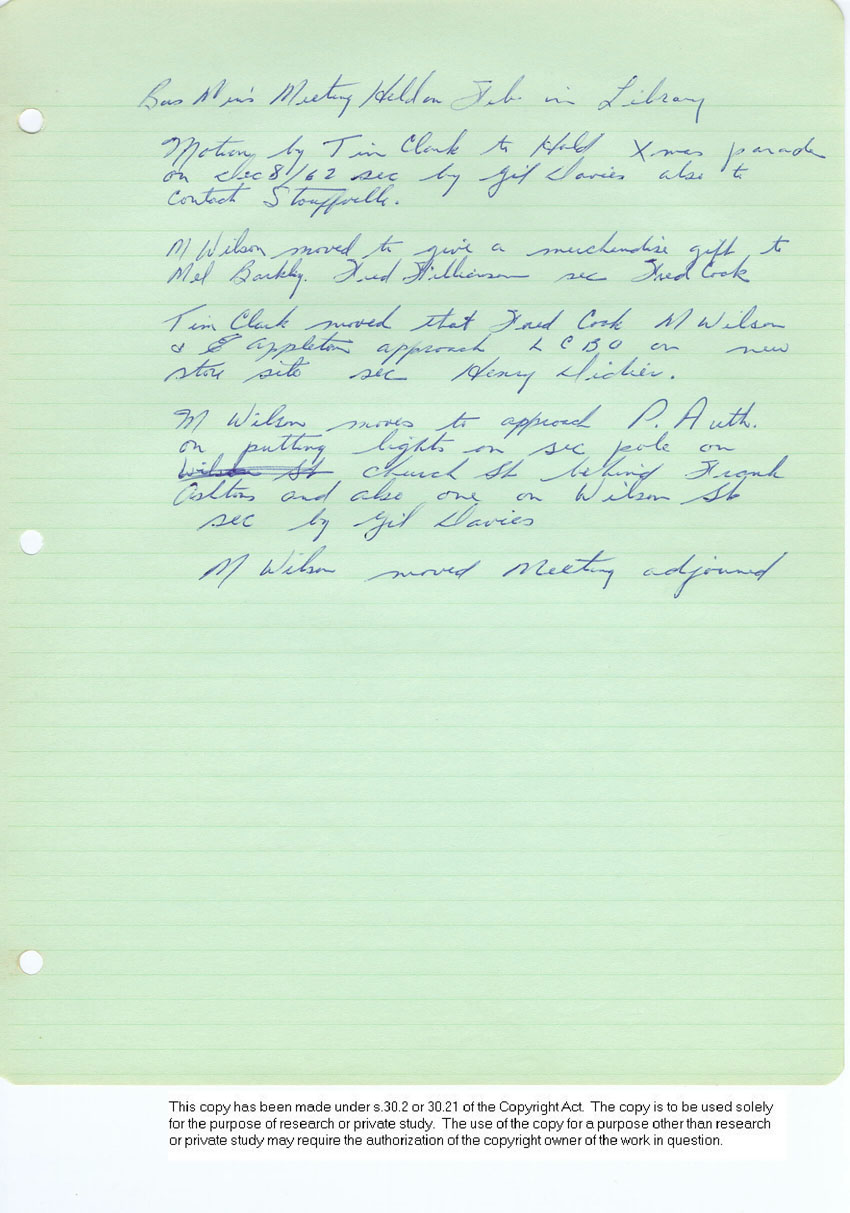 Bus Men's Meeting Held on Feb. in Library
Motion by Tim Clark to Hold Xmas parade
on Dec 8/62 sec by Gil Davies also to
Contact Stouffville.
M Wilson moved to give a merchandise gift to
Mel Barkley. Fred Williamson sec Fred Cook
Tim Clark moved that Fred Cook M Wilson
& E Appleton approach L C B O on new
store site sec Henry
M Wilson moves to approach P. Auth.
on putting lights on sec pole on
Wilson St Church St behind Frank
Ashtons and also one on Wilson St
sec by Gil Davies
M Wilson moved Meeting adjourned
This copy has been made under s.30.2 or 30.21 of the Copyright Act. The copy is to be used solely
for the purpose of research or private study. The use of the copy for a purpose other than research
or private study may require the authorization of the copyright owner of the work in question.